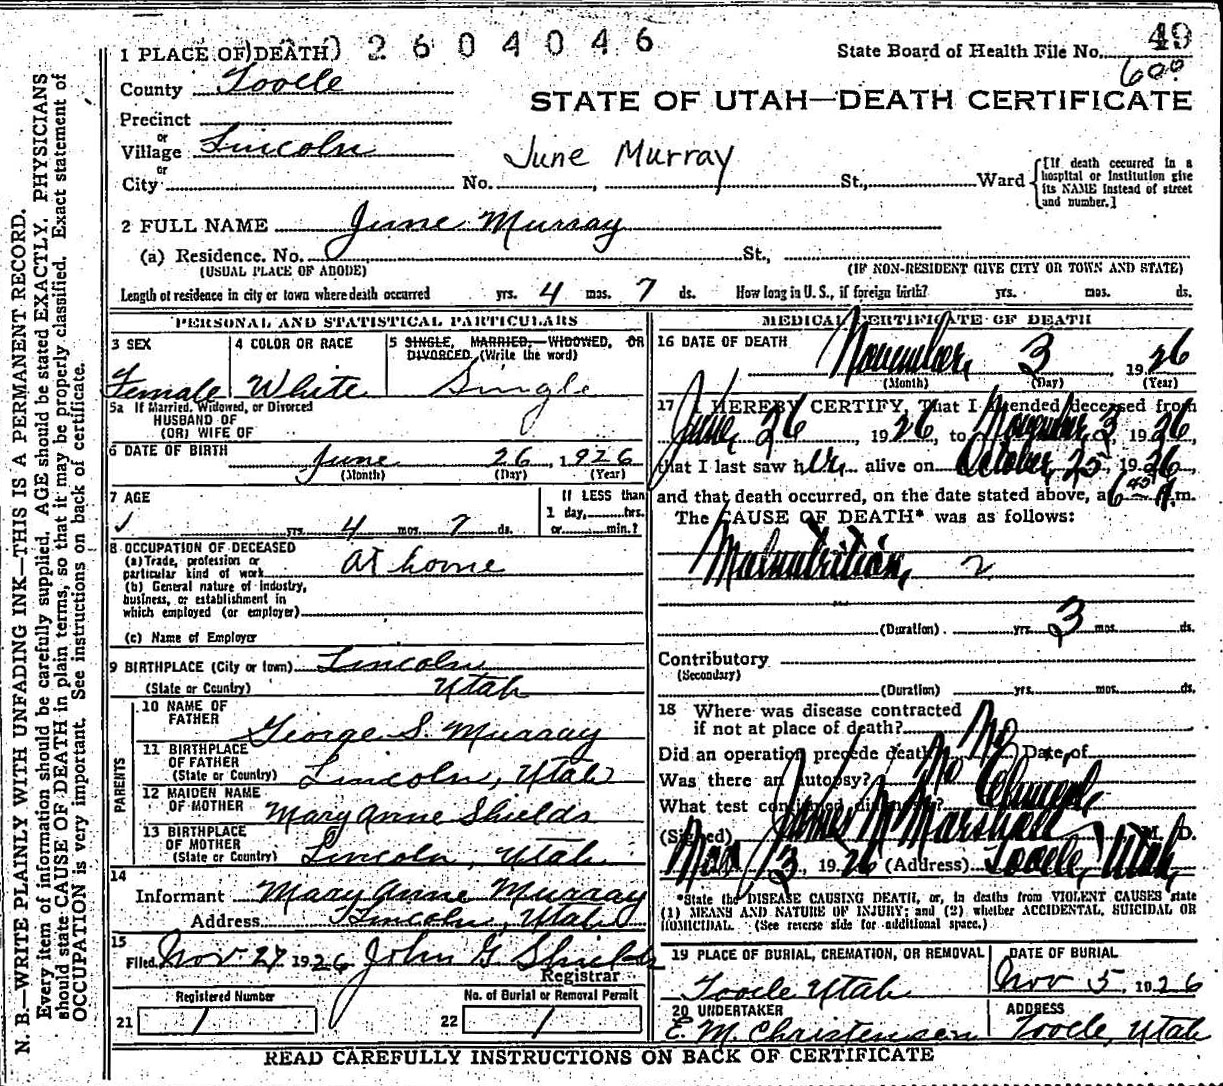 N. B.—WRITE PLAINLY WITH UNFADING INK—THIS IS A PERMANENT RECORD.
Every item of information should be carefully supplied. AGE should be stated EXACTLY. PHYSICIANS
should state CAUSE OF DEATH in plain terms, so that it may be properly classified. Exact statement of
OCCUPATION is very important. See instructions on back of certificate.
1 PLACE OF DEATH
2604046
State Board of Health File No. 49
600
County Tooele
STATE OF UTAH—DEATH CERTIFICATE
Precinct
or
Village Lincoln
June Murray
or
City No. St., Ward
[If death occurred in a
hospital or institution give
its NAME instead of street
and number.]
2 FULL NAME June Murray
(a) Residence. No. St.,
(USUAL PLACE OF ABODE) (IF NON-RESIDENT GIVE CITY OR TOWN AND STATE)
Length of residence in city or town where death occurred yrs. 4 mos. 7 ds. How long in U. S., if foreign birth? yrs. mos. ds.
PERSONAL AND STATISTICAL PARTICULARS
3 SEX 4 COLOR OR RACE 5 SINGLE, MARRIED, WIDOWED, OR
DIVORCED (Write the word)
Female White Single
5a If Married, Widowed, or Divorced
HUSBAND OF
(OR) WIFE OF
6 DATE OF BIRTH June 26, 1926
(Month) (Day) (Year)
7 AGE IF LESS than
1 day, hrs.
yrs. 4 mos. 7 ds. or min.?
8 OCCUPATION OF DECEASED
(a) Trade, profession or
particular kind of work At home
(b) General nature of industry,
business, or establishment in
which employed (or employer)
(c) Name of Employer
9 BIRTHPLACE (City or town) Lincoln
(State or Country) Utah
PARENTS
10 NAME OF
FATHER George S. Murray
11 BIRTHPLACE
OF FATHER
(State or Country) Lincoln, Utah
12 MAIDEN NAME
OF MOTHER Mary Anne Shields
13 BIRTHPLACE
OF MOTHER
(State or Country) Lincoln, Utah
14
Informant Mary Anne Murray
Address Lincoln, Utah
15
Filed Nov. 27 1926 John G Shields
Registrar
Registered Number No. of Burial or Removal Permit
21 1 22 1
MEDICAL CERTIFICATE OF DEATH
16 DATE OF DEATH
November, 3 1926
(Month) (Day) (Year)
17 I HEREBY CERTIFY, That I attended deceased from
June, 26, 1926, to November, 3, 1926,
that I last saw her alive on October, 25, 1926,
and that death occurred, on the date stated above, at 6 45 A.m.
The CAUSE OF DEATH* was as follows:
Malnutrition,
(Duration) yrs. 3 mos. ds.
Contributory
(Secondary)
(Duration) yrs. mos. ds.
18 Where was disease contracted
if not at place of death?
Did an operation precede death? No Date of
Was there an autopsy? No
What test confirmed diagnosis? Clinical,
(Signed) James N Marshall M. D.
Nov 3, 1926 (Address) Tooele, Utah,
*State the DISEASE CAUSING DEATH, or, in deaths from VIOLENT CAUSES state
(1) MEANS AND NATURE OF INJURY; and (2) whether ACCIDENTAL, SUICIDAL OR
HOMICIDAL. (See reverse side for additional space.)
19 PLACE OF BURIAL, CREMATION, OR REMOVAL DATE OF BURIAL
Tooele Utah Nov 5, 1926
20 UNDERTAKER ADDRESS
E. M. Christensen Tooele, Utah
READ CAREFULLY INSTRUCTIONS ON BACK OF CERTIFICATE